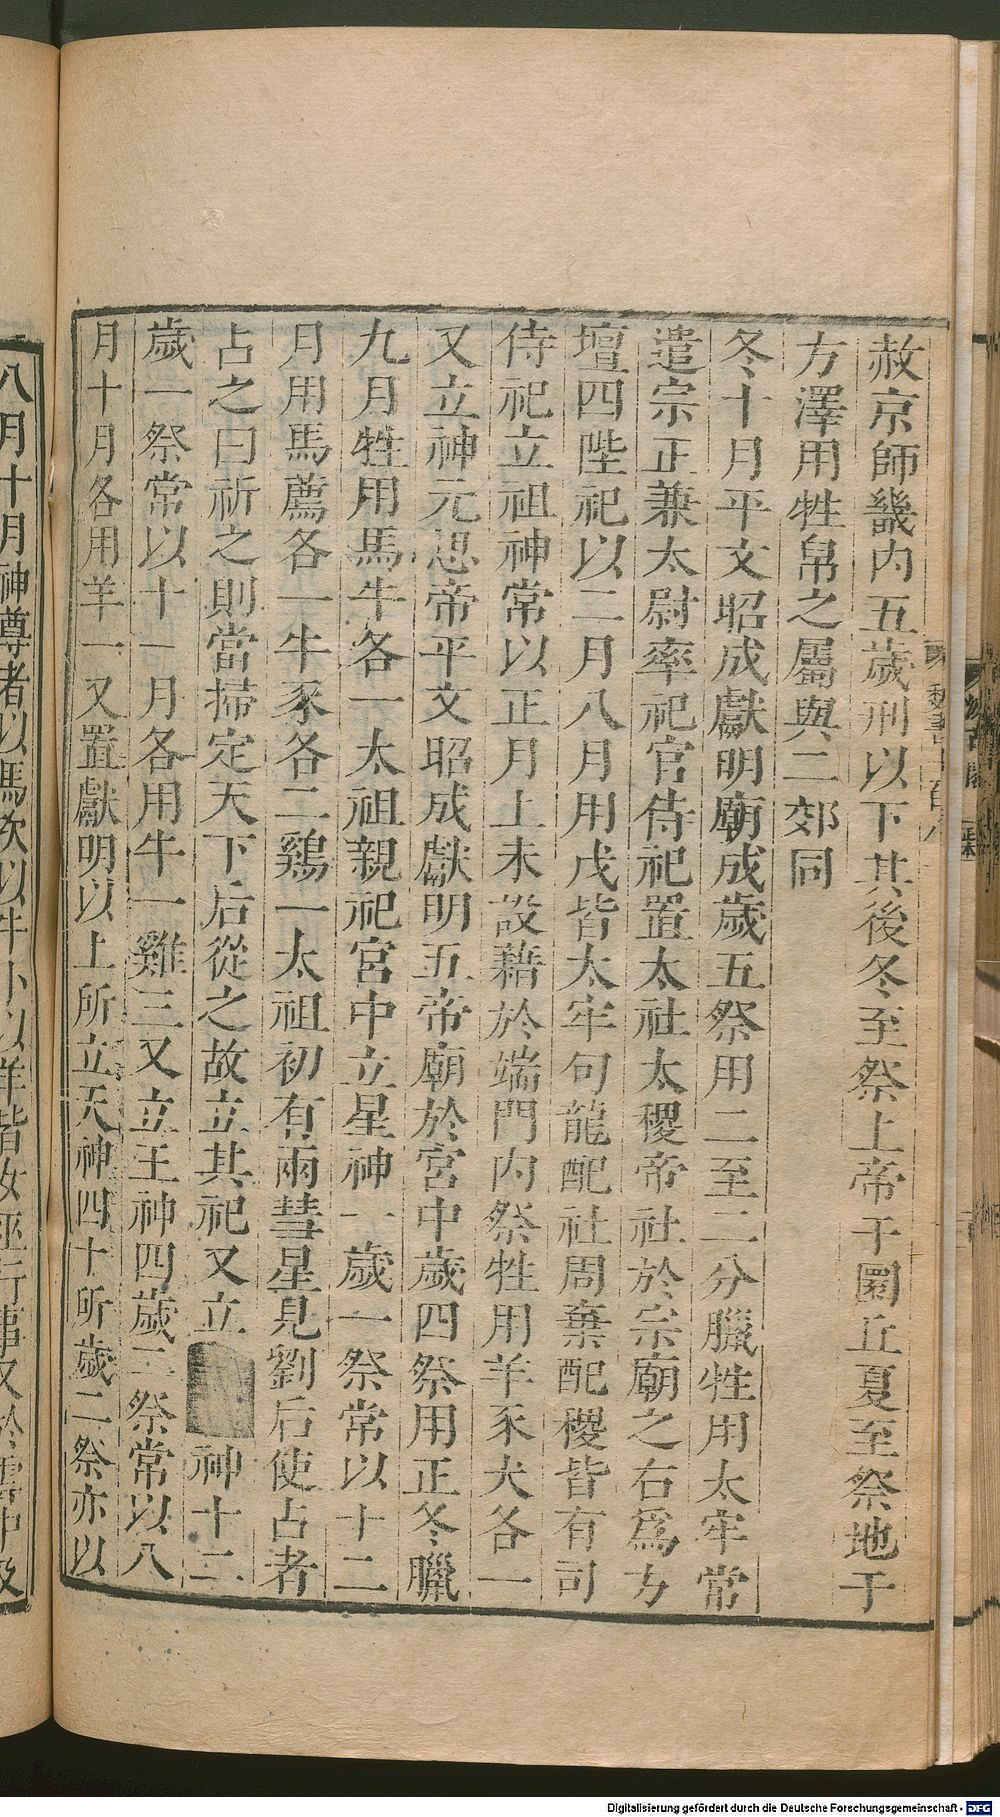 赦京師畿內五歲刑以下其後冬至祭上帝于圜丘夏至祭地于
方澤用牲帛之屬與二郊同
冬十月平文昭成獻明廟成歲五祭用二至二分臘牲用太牢常
遣宗正兼太尉率祀官侍祀置太社太稷帝社於宗廟之右爲方
壇四陛祀以二月八月用戊皆太牢句龍配社周棄配稷皆有司
侍祀立祖神常以正月上未設藉於端門內祭牲用羊豕犬各一
又立神元思帝平文昭成獻明五帝廟於宮中歲四祭用正冬臘
九月牲用馬牛各一太祖親祀宮中立星神一歲一祭常以十二
月用馬薦各一牛豕各二鷄一太祖初有兩彗星見劉后使占者
占之曰祈之則當掃定天下后從之故立其祀又立神十二
歲一祭常以十一月各用牛一雞三又立王神四歲二祭常以八
月十月各用羊一又置獻明以上所立天神四十所歲二祭亦以
八月十月神尊者以馬次以牛小以羊皆女巫行事又於雲中及
Digitalisierung gefördert durch die Deutsche Forschungsgemeinschaft - DFG